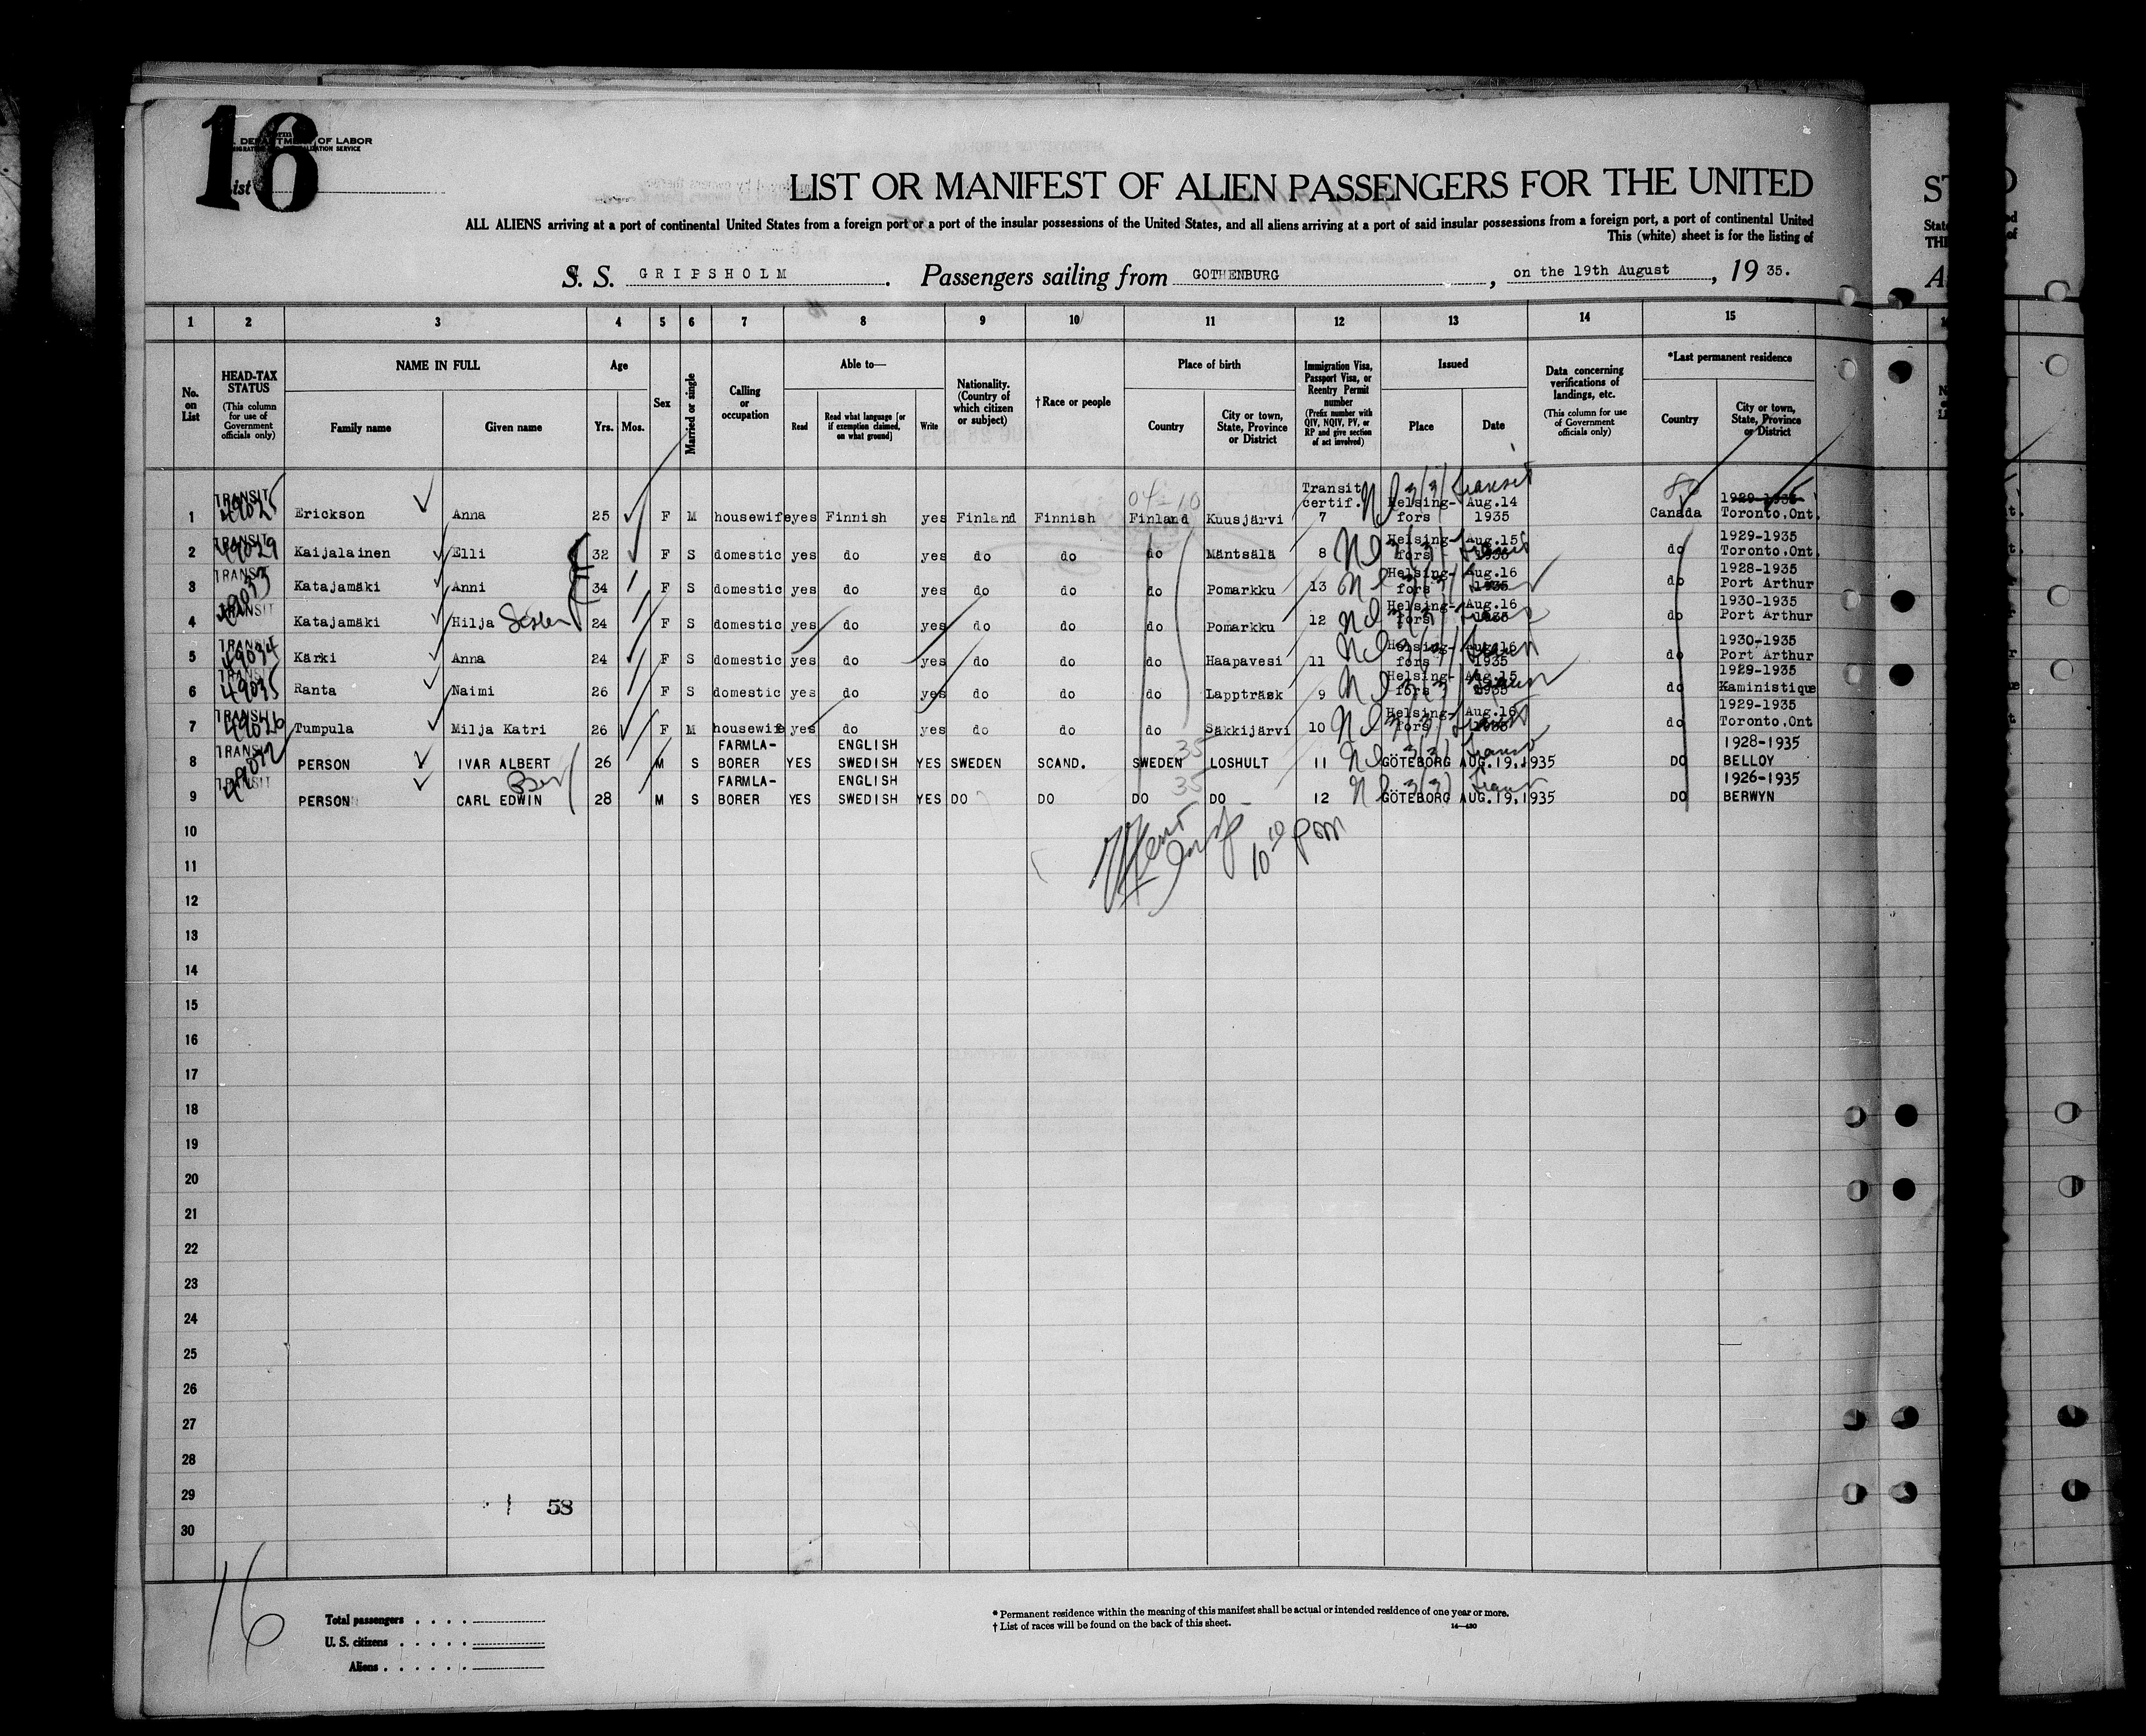 16
DEPARTMENT OF LABOR
List
LIST OR MANIFEST OF ALIEN PASSENGERS FOR THE UNITED
ALL ALIENS arriving at a port of continental United States from a foreign port or a port of the insular possessions of the United States, and all aliens arriving at a port of said insular possessions from a foreign port, a port of continental United
This (white) sheet is for the listing of
S. S. GRIPSHOLM. Passengers sailing from GOTHENBURG, on the 19th August, 19 35.
1 2 3 4 5 6 7 8 9 10 11 12 13 14 15
No. on List
HEAD-TAX STATUS (This column for use of Government officials only)
NAME IN FULL
Family name Given name
Age
Yrs. Mos.
Sex
Married or single
Calling or occupation
Able to—
Read Read what language [or if exemption claimed, on what ground] Write
Nationality. (Country of which citizen or subject)
†Race or people
Place of birth
Country City or town, State, Province or District
Immigration Visa, Passport Visa, or Reentry Permit number (Prefix number with QIV, NQIV, PV, or RP and give section of act involved)
Issued
Place Date
Data concerning verifications of landings, etc. (This column for use of Government officials only)
*Last permanent residence
Country City or town, State, Province or District
1 TRANSIT 49025 Erickson Anna 25 F M housewife yes Finnish yes Finland Finnish Finland Kuusjärvi Transit certif. 7 Helsingfors Aug.14 1935 Canada 1929-1935 Toronto.Ont.
2 TRANSIT 49029 Kaijalainen Elli 32 F S domestic yes do yes do do do Mäntsälä 8 Helsingfors Aug.15 1935 do 1929-1935 Toronto.Ont.
3 TRANSIT 49033 Katajamäki Anni 34 F S domestic yes do yes do do do Pomarkku 13 Helsingfors Aug.16 1935 do 1928-1935 Port Arthur
4 TRANSIT Katajamäki Hilja Sister 24 F S domestic yes do yes do do do Pomarkku 12 Helsingfors Aug.16 1935 do 1930-1935 Port Arthur
5 TRANSIT 49034 Kärki Anna 24 F S domestic yes do yes do do do Haapavesi 11 Helsingfors Aug.16 1935 do 1930-1935 Port Arthur
6 TRANSIT 49035 Ranta Naimi 26 F S domestic yes do yes do do do Lappträsk 9 Helsingfors Aug.15 1935 do 1929-1935 Kaministique
7 TRANSIT 49026 Tumpula Milja Katri 26 F M housewife yes do yes do do do Säkkijärvi 10 Helsingfors Aug.16 1935 do 1929-1935 Toronto.Ont
8 TRANSIT PERSON IVAR ALBERT 26 M S FARMLA-BORER YES ENGLISH SWEDISH YES SWEDEN SCAND. SWEDEN LOSHULT 11 GÖTEBORG AUG.19.1935 DO 1928-1935 BELLOY
9 TRANSIT PERSON CARL EDWIN 28 M S FARMLA-BORER YES ENGLISH SWEDISH YES DO DO DO DO 12 GÖTEBORG AUG.19.1935 DO 1926-1935 BERWYN
10
11
12
13
14
15
16
17
18
19
20
21
22
23
24
25
26
27
28
29
30
58
16
Total passengers
U. S. citizens
Aliens
* Permanent residence within the meaning of this manifest shall be actual or intended residence of one year or more.
† List of races will be found on the back of this sheet.
14—430